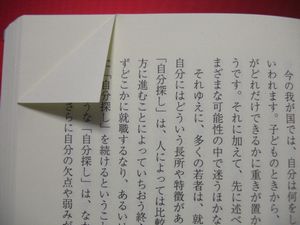 今の我が国では、自分は何をし
いわれます。子どものときから、
がどれだけできるかに重きが置か
うです。それに加えて、先に述べ
まざまな可能性の中で迷うほかな
それゆえに、多くの若者は、就
自分にはどういう長所や特徴があ
「自分探し」は、人によっては比較
方に進むことによっていちおう終
ずどこかに就職するなり、あるい
に「自分探し」を続けるということ
うな「自分探し」は、なか
さらに自分の欠点や弱みが